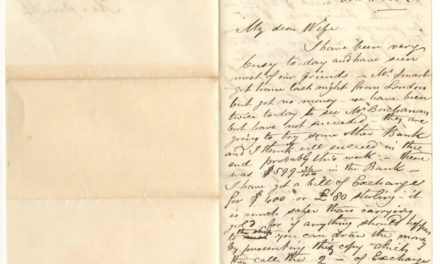 My dear Wife
I have been very
busy to day and have seen
most of our friends – Mr Smart
got home last night from London
but got no money – we have been
twice to day to see Mr Buchanan
but have not succeeded – they are
going to try some other Bank
and I think will succeed in the
end probably this week – there
was $599 in the Bank –
I have got a bill of Exchange
for $400 or £80 sterling – it
is much safer than carrying
gold for if anything should happen
to the ship you can draw the money
by presenting the copy which
they call the 2 – of Exchange